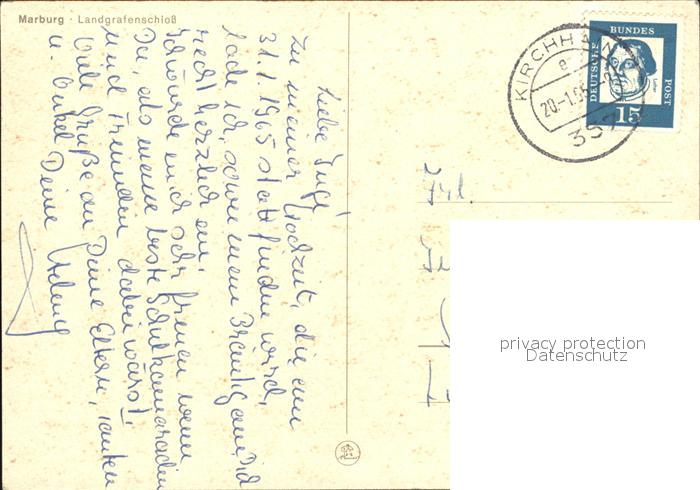 Marburg · Landgrafenschloß
Liebe
Zu meiner Hochzeit, die am
31.1.1965 stattfinden wird,
lade ich, sowie mein Bräutigam Dich
recht herzlich ein.
Es würde mich sehr freuen wenn
Du, als meine beste Schulkameradin
und Freundin dabei wärst.
Viele Grüße an Deine Eltern, Tanten
u. Onkel Deine
KIRCHHAIN
e
20.-1.65
357
DEUTSCHE
BUNDES
POST
15
Frl.
privacy protection
Datenschutz